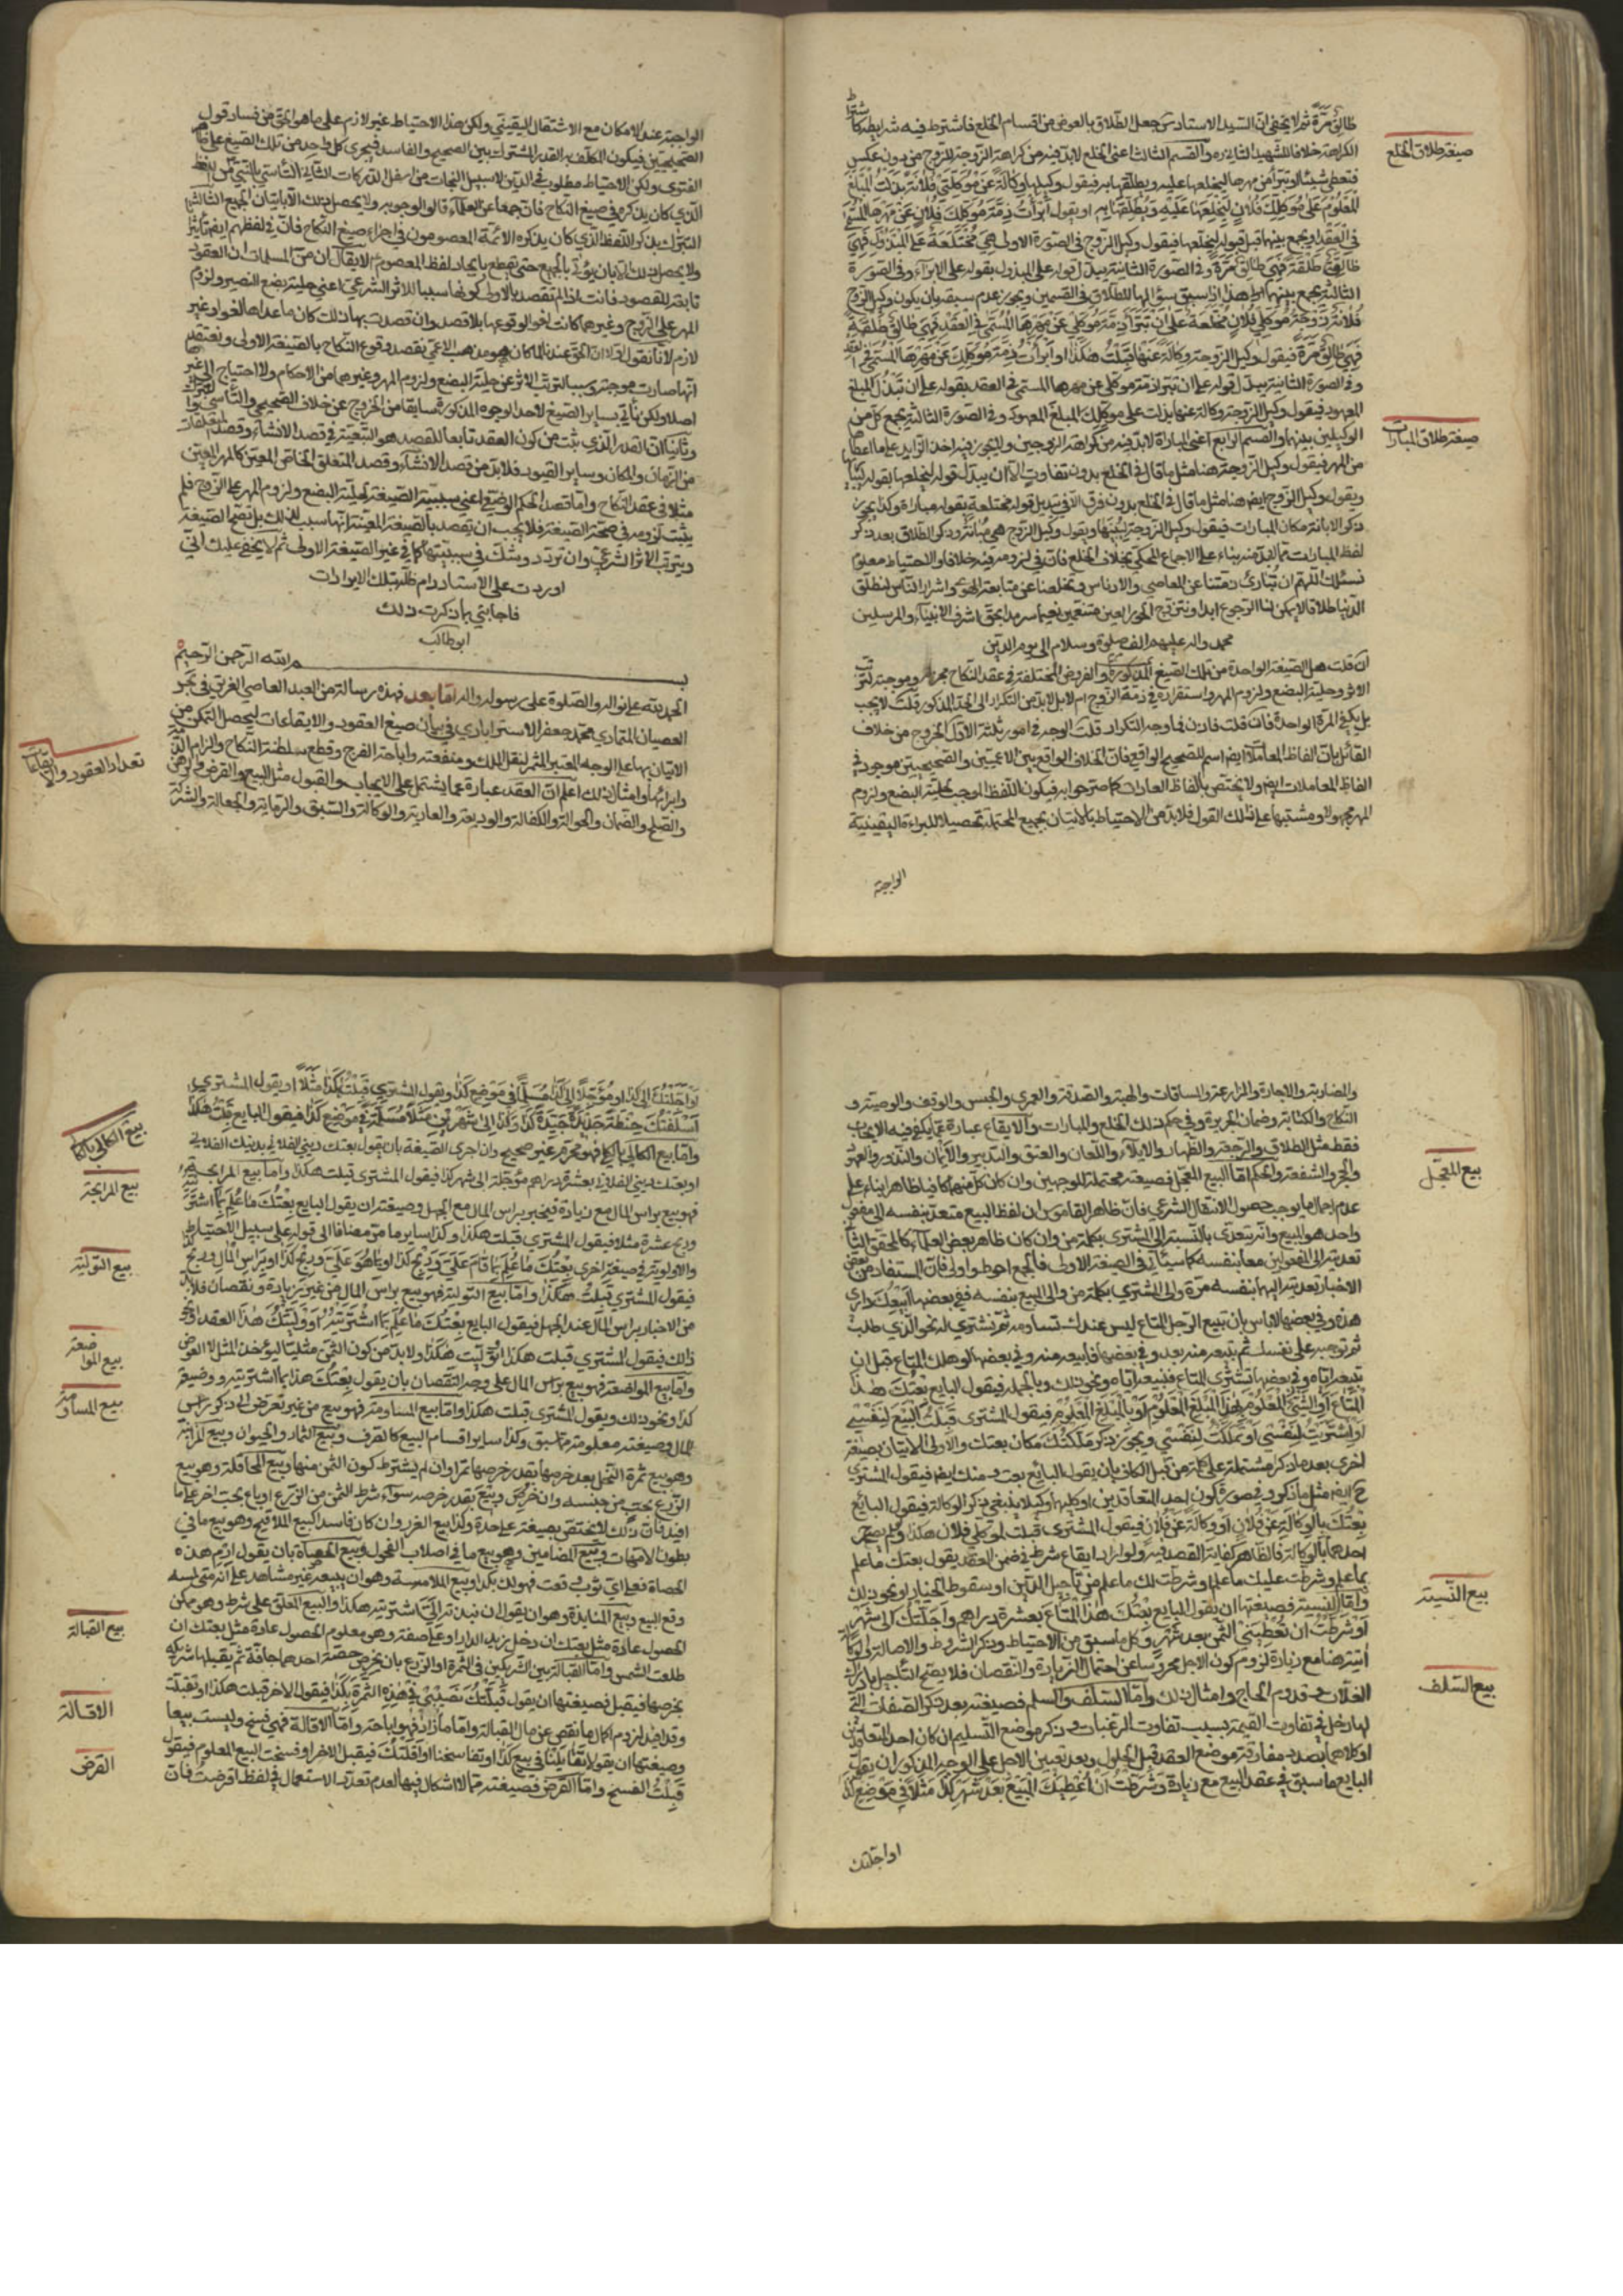 طالق مرّة ثم لا يخفى ان السّيد الاستاد جعل الطّلاق بالعوض من اقسام الخلع فاشترط فيه شرايطه كاشتراط
الكراهة خلافا للشهيد الثاني ره والقسم الثالث اعنى الخلع لابدّ فيه من كراهة الزّوجة للزّوج من دون عكس
صيغة طلاق الخلع
فتعطى شيئا او تبرأ من مهرها ليخلعها عليه ويطلّقها به فيقول وكيلها وكالة عن موكّلتى فلانة بذلت المبلغ
المعلوم على موكّلك فلان ليخلعها عليه ويطلّقها به او يقول ابرأت ذمّة موكّلك فلان عن مهرها المسمّى
في العقد او يجمع بينهما قبل قوله ليخلعها فيقول وكيل الزّوج فى الصّورة الاولى هى مختلعة على المبذول فهى
طالق طلقة فهى طالق مرّة وفي الصورة الثانية يبدّل قوله على المبذول بقوله على الابراء وفي الصورة
الثالثة يجمع بينهما هذا اذا سبق سؤالها للطّلاق فى القسمين ويجوز عدم سبقه بان يكون وكيل الزّوج
فلانة زوجة موكّلى فلان مختلعة على ان تبرأ ذمّة موكّلى عن مهرها المسمّى في العقد فهى طالق طلقة
فهى طالق مرّة فيقول وكيل الزوجة وكالة عنها قبلت هكذا او ابرأت ذمّة موكّلك عن مهرها المسمّى في العقد
وفى الصورة الثانية يبدّل قوله على ان تبرأ ذمّة موكلى عن مهرها المسمى في العقد بقوله على ان تبذل المبلغ
المعهود فيقول وكيل الزوجة وكالة عنها بذلت على موكّلك المبلغ المعهود وفى الصورة الثالثة يجمع كل من
صيغة طلاق المبارات
الوكيلين بينهما والقسم الرابع اعنى المباراة لابدّ فيه من كراهة الزوجين ولا يجوز فيه اخذ الزايد على ما اعطاها
من المهر فيقول وكيل الزوجة هنا مثل ما قال فى الخلع بدون تفاوت الا ان يبدّل قوله ليخلعها بقوله
ويقول وكيل الزّوج ايضا هنا مثل ما قال فى الخلع بدون فرق الا في تبديل قوله مختلعة بقوله مباراة وكذا يجوز
ذكر الابانة مكان المبارات فيقول وكيل الزوجة ليبينها ويقول وكيل الزوج هى مبانة وذكر الطلاق بعد ذكر
لفظ المبارات مما لابدّ منه بناء على الاجماع المحكى بخلاف الخلع فان في لزومه فيه خلافا والاحتياط معلوم
نسئلك اللهم ان تبارئ ذمّتنا عن المعاصى والادناس وتخلصنا عن متابعة الهوى واشرار النّاس لنطلّق
الدّنيا طلاقا لا يمكن لنا الرّجوع ابدا ونتزوّج الحور العين متنعّمين نعيما سرمدا بحق اشرف الانبياء والمرسلين
محمد واله عليهم الف صلوة وسلام الى يوم الدّين
ان قلت هل الصّيغة الواحدة من تلك الصّيغ المذكورة والفروض المختلفة في عقد النّكاح مجزية وموجبة لترتّب
الاثر وحلّية البضع ولزوم المهر واستقراره فى ذمة الزوج ام لا بل لابدّ من التكرار الى الحدّ المذكور قلت لا يجب
بل يكفى المرّة الواحدة فان قلت فاذن فما وجه التكرار قلت الوجه فيه امور ثلثة الاوّل الخروج من خلاف
القائل بان الفاظ المعاملات ايضا اسم للصّحيح الواقعى فان الخلاف الواقع بين الاعميّين والصّحيحيّين موجود في
الفاظ المعاملات ايضا ولا يختصّ بالفاظ العبادات كما صرّحوا به فيكون اللفظ الموجب لحلّية البضع ولزوم
المهر مجهولا ومشتبها على ذلك القول فلابدّ من الاحتياط بالاتيان بجميع المحتملة تحصيلا للبراءة اليقينية
الواجبة
الواجبة عند الامكان مع الاشتغال اليقينى ولكن هذا الاحتياط غير لازم على ما هو الحق من فساد قول
الصّحيحيّين فيكون المكلّف به القدر المشترك بين الصحيح والفاسد فيجرى كل واحد من تلك الصّيغ على
الفتوى ولكن الاحتياط مطلوب فى الدّين لا سبيل النجات من اسفل الدّركات الثانى التّأسّى بالنّبىّ من لفظ
الّذي كان يذكره في صيغ النكاح فان جمعا من العلماء قالوا بوجوبه ولا يحصل ذلك الا بايتان الجميع الثالث
التبرّك بذكر اللفظ الذي كان يذكره الائمّة المعصومون في اجراء صيغ النكاح فان في لفظهم ايضا تاثيرا
ولا يحصل ذلك الا بان يؤتى بالجميع حتى يقطع بايجاد لفظ المعصوم لا يقال ان من المسلمات ان العقود
تابعة للقصود فانت اذا لم تقصد بالاولى كونها سببا للاثر الشرعى اعنى حلية بضع النصير ولزوم
المهر على الزوج وغيرهما كانت لغوا لوقوعها بلا قصد وان قصدت بها ذلك كان ما عداها لغوا وغير
لازم لانا نقول اولا ان الحق عندنا لما كان هو مذهب الاعمى نقصد وقوع النكاح بالصّيغة الاولى ونعتقد
انّها صارت موجبة وسببا لترتّب الاثر عن حلّية البضع ولزوم المهر وغيرهما من الاحكام ولا احتياج الى الغير
اصلا ولكن نأتى بساير الصّيغ لاحد الوجوه المذكورة سابقا من الخروج عن خلاف الصّحيحى والتّأسى والتبرك
وثانيا ان القدر الّذي ثبت من كون العقد تابعا للقصد هو التّبعية في قصد الانشاء وقصد المتعلقات
من الزّمان والمكان وساير القيود فلابدّ من قصد الانشاء وقصد المتعلّق الخاصّ المعيّن كالمهر المعيّن
مثلا في عقد النّكاح وامّا قصد الحكم الوضعى اعنى سببيّة الصّيغة لحلّية البضع ولزوم المهر على الزّوج فلم
يثبت لزومه في صحّة الصّيغة فلا يجب ان يقصد بالصّيغة المعيّنة انّها سبب لذلك بل تصحّ الصّيغة
ويترتّب الاثر الشّرعى وان تردّد وشكّ في سببيّتها كما في غير الصّيغة الاولى ثم لا يخفى عليك انّى
اوردت على الاستاد دام ظلّه تلك الايرادات
فاجابنى بما ذكرت ذلك
ابوطالب
بسم الله الرّحمن الرّحيم
الحمد لله على نواله والصّلوة على رسوله واله امّا بعد فهذه رسالة من العبد العاصى الغريق في بحر
العصيان المتمادى محمّد جعفر الاسترابادى في بيان صيغ العقود والايقاعات ليحصل التمكّن من
الاتيان بها على الوجه المعتبر المثمر لنقل الملك ومنفعته واباحة الفرج وقطع سلطنة النّكاح والزام الذّمة
تعداد العقود والايقاعات
وابرائها وامثال ذلك اعلم ان العقد عبارة عما يشتمل على الايجاب والقبول مثل البيع والقرض والرّهن
والصّلح والضّمان والحوالة والكفالة والوديعة والعارية والوكالة والسّبق والرّماية والجعالة والشّركة
والمضاربة والاجارة والمزارعة والمساقات والهبة والصّدقة والعمرى والحبس والوقف والوصيّة و
النّكاح والكتابة وضمان الجريرة وفى حكم ذلك الخلع والمبارات والايقاع عبارة عمّا يكفى فيه الايجاب
فقط مثل الطلاق والرّجعة والظّهار والايلاء واللّعان والعتق والتّدبير والأيمان والنّذور والعهود
بيع المعجّل
والحجر والشفعة والحكم امّا البيع المعجّل فصيغته محتملة للوجهين وان كان كل منهما كافيا ظاهرا بناء على
عدم اجمال ما يوجب حصول الانتقال الشرعى فان ظاهر القاموس ان لفظ البيع متعدّ بنفسه الى مفعول
واحد هو المبيع وانّه يتعدّى بالنّسبة الى المشترى بكلمة من وان كان ظاهر بعض العلماء كالمحقق الثانى
تعديته الى المفعولين معا بنفسه كما سيأتى فى الصيغة الاولى فالجمع احوط واولى فان المستفاد من بعض
الاخبار تعديته اليهما بنفسه مرّة والى المشترى بكلمة من والى المبيع بنفسه ففى بعضها ابيعك دارى
هذه وفى بعضها لا باس بان تبيع الرّجل المتاع ليس عندك تساومه ثم تشترى له نحو الّذي طلب
ثم توجبه على نفسك ثم تبيعه منه بعد وفى بعضها فابيعه منه وفى بعضها لو هلك المتاع قبل ان
تبيعه اياه وفى بعضها تشترى المتاع فتبيعه اياه ونحو ذلك وبالجملة فيقول البايع بعتك هذا
المتاع او الشّئ المعلوم بهذا المبلغ المعلوم او بالمبلغ المعلوم فيقول المشترى قبلت البيع لنفسى
او اشتريت لنفسى او تملّكت لنفسى ويجوز ذكر ملّكتك مكان بعتك والاولى الاتيان بصيغة
اخرى بعد ما ذكر مشتملة على كلمة من قبل الكاف بان يقول البائع بعت منك ايضا فيقول المشترى
ح ايضا مثل ما ذكر وفى صورة كون احد المتعاقدين او كليهما وكيلا ينبغى ذكر الوكالة فيقول البائع
بعتك بالوكالة عن فلان او وكالة عن فلان فيقول المشترى قبلت لموكّلى فلان هكذا ولو لم يصرّح
احدهما بالوكالة فالظاهر كفاية القصد فيه ولو اراد ايقاع شرط فى ضمن العقد يقول بعتك ما علم
بما علم وشرطت عليك ما علم او شرطت لك ما علم من تاجيل الدّين او سقوط الخيار او نحو ذلك
بيع النّسية
وامّا النسية فصيغتها ان يقول البايع بعتك هذا المتاع بعشرة دراهم واجّلتك الى شهر
او شرطت ان تعطينى الثمن بعد شهر وكل ما سبق من الاحتياط وذكر الشروط والاصالة والوكالة
ات هنا مع زيادة لزوم كون الاجل محروسا عن احتمال الزّيادة والنّقصان فلا يصحّ التّأجيل بادراك
بيع السّلف
الغلات وقدوم الحاج وامثال ذلك وامّا السّلف والسلم فصيغته بعد ذكر الصفات الّتى
لها دخل فى تفاوت القيمة بسبب تفاوت الرغبات وذكر موضع التّسليم ان كان احد المتعاقدين
او كلاهما بصدد مفارقة موضع العقد قبل الحلول وبعد تعيين الاجل على الوجه المذكور ان يقول
البايع ما سبق فى عقد البيع مع زيادة وشرطت ان اعطيك المبيع بعد شهر كذا مثلا في موضع كذا
او اجّلتك
او اجّلتك الى كذا او مؤجّلا الى كذا مسلّما فى موضع كذا ويقول المشترى قبلت هكذا مثلا او يقول المشترى
اسلفتك حنطة جيّدة كذا وكذا الى شهرين مثلا مسلّمة فى موضع كذا فيقول البايع قبلت هكذا
بيع الكالى بالكالى
وامّا بيع الكالى بالكالى فهو محرّم غير صحيح وان اجرى الصّيغة بان يقول بعتك دينى الفلانى بدينك الفلانى
بيع المرابحة
او بعتك دينى الفلانى بعشرة دراهم مؤجّلة الى شهر كذا فيقول المشترى قبلت هكذا وامّا بيع المرابحة
فهو بيع براس المال مع زيادة فيخبر براس المال مع الجهل وصيغته ان يقول البايع بعتك ما علم بما اشتريته
وربح عشرة مثلا فيقول المشترى قبلت هكذا وكذا ساير ما مرّ مضافا الى قوله على سبيل الاحتياط
بيع التّولية
والاولوية فى صيغة اخرى بعتك ما علم بما قام علىّ وربح كذا او بما هو علىّ وربح كذا او براس المال وربح كذا
فيقول المشترى قبلت هكذا وامّا بيع التولية فهو بيع براس المال من غير زيادة ونقصان فلابدّ
من الاخبار براس المال عند الجهل فيقول البايع بعتك ما علم بما اشتريته او ولّيتك هذا العقد او نحو
بيع المواضعة
ذلك فيقول المشترى قبلت هكذا او تولّيت هكذا ولابدّ من كون الثمن مثليّا ليؤخذ المثل لا العوض
وامّا بيع المواضعة فهو بيع براس المال على وجه النّقصان بان يقول بعتك هذا بما اشتريته ووضيعة
بيع المساومة
كذا ونحو ذلك ويقول المشترى قبلت هكذا وامّا بيع المساومة فهو بيع من غير تعرّض الى ذكر راس
المال وصيغته معلومة مما سبق وكذا ساير اقسام البيع كالصّرف وبيع الثمار والحيوان وبيع المزابنة
وهو بيع ثمرة النّخل بعد خرصها بقدر خرصها تمرا وان لم يشترط كون الثمن منها وبيع المحاقلة وهو بيع
الزّرع بحبّ من جنسه وان خرص وبيع بقدر خرصه سواء شرط الثمن من الزّرع او باع بحبّ اخر على ما
افيد فان ذلك لا يختصّ بصيغة على حدة وكذا بيع الغرر وان كان فاسدا كبيع الملاقيح وهو بيع ما فى
بطون الامّهات وبيع المضامين وهو بيع ما فى اصلاب الفحول وبيع الحصاة بان يقول ارم هذه
الحصاة فعلى اىّ ثوب وقعت فهو لك بكذا وبيع الملامسة وهو ان يبيعه غير مشاهد على انّه متى لمسه
وقع البيع وبيع المنابذة وهو ان يقول ان نبذته الىّ اشتريته هكذا والبيع المعلّق على شرط وهو ممكن
بيع القبالة
الحصول عادة مثل بعتك ان دخل زيد الدار او على صفة وهو معلوم الحصول عادة مثل بعتك ان
طلعت الشمس وامّا القبالة بين الشّريكين فى الثمرة او الزّرع بان يخرص حصّة احدهما جافة ثم يتقبلها شريكه
بخرصها فيقبل فصيغتها ان يقول قبّلتك نصيبى فى هذه الثّمرة بكذا فيقول الاخر قبلت هكذا او تقبّلته
الاقالة
وقد افيد لزوم اكمال ما نقص عن مال القبالة وامّا ما زاد فهو اباحة وامّا الاقالة فهى فسخ وليست بيعا
وصيغتها ان يقولا تقايلنا فى بيع كذا او تفاسخنا او اقلتك فيقبل الاخر او فسخت البيع المعلوم فيقول
القرض
قبلت الفسخ وامّا القرض فصيغته ممّا لا اشكال فيها لعدم تعدّد الاستعمال فى لفظ اقرضت فان